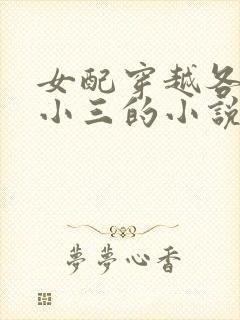 女配穿越各
小三的小說
夢夢心香